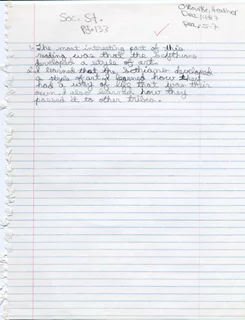 Soc. St.
Pg. 133
Heather
1. The most interesting part of this
reading was that the Scythians
developed a style of art.
2. I learned that the Scythians developed
a style of art. I learned how they
had a way of life that was their
own. I also learned how they
passed it to other tribes.